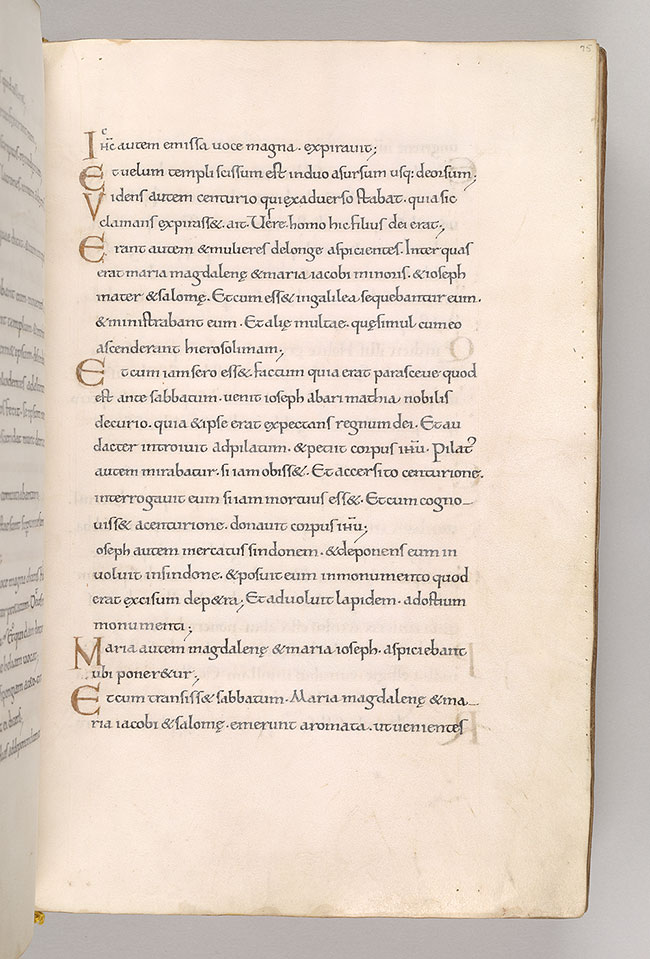 75
Ihc autem emissa uoce magna. expirauit;
Et uelum templi scissum est induo asursum usq: deorsum;
Videns autem centurio quiexaduerso stabat. quia sic
clamans expirass&. ait. Uere homo hic filius dei erat;
Erant autem & mulieres delonge aspicientes. Inter quas
erat maria magdalenę & maria iacobi minoris. & ioseph
mater & salomę. Et cum ess& ingalilea sequebantur eum.
& ministrabant eum. Et alię multae. quęsimul cum eo
ascenderunt hierosolimam;
Et cum iam sero ess& factum quia erat parasceue quod
est ante sabbatum. uenit ioseph abarimathia nobilis
decurio. quia & ipse erat expectans regnum dei. Et au
dacter introiuit adpilatum. & petiit corpus ihu. Pilat'
autem mirabatur. si iam obiss&. Et accersito centurione.
interrogauit eum si iam mortuus ess&. Et cum cogno-
uiss& acenturione. donauit corpus ihu;
oseph autem mercatus sindonem. & deponens eum in
uoluit insindone. & posuit eum inmonumento quod
erat excisum dep&ra; Et aduoluit lapidem. adostium
monumenti;
Maria autem magdalenę & maria ioseph. aspiciebant
ubi poner&ur;
Et cum transiss& sabbatum. Maria magdalenę & ma-
ria iacobi & salomę. emerunt aromata. ut uenientes